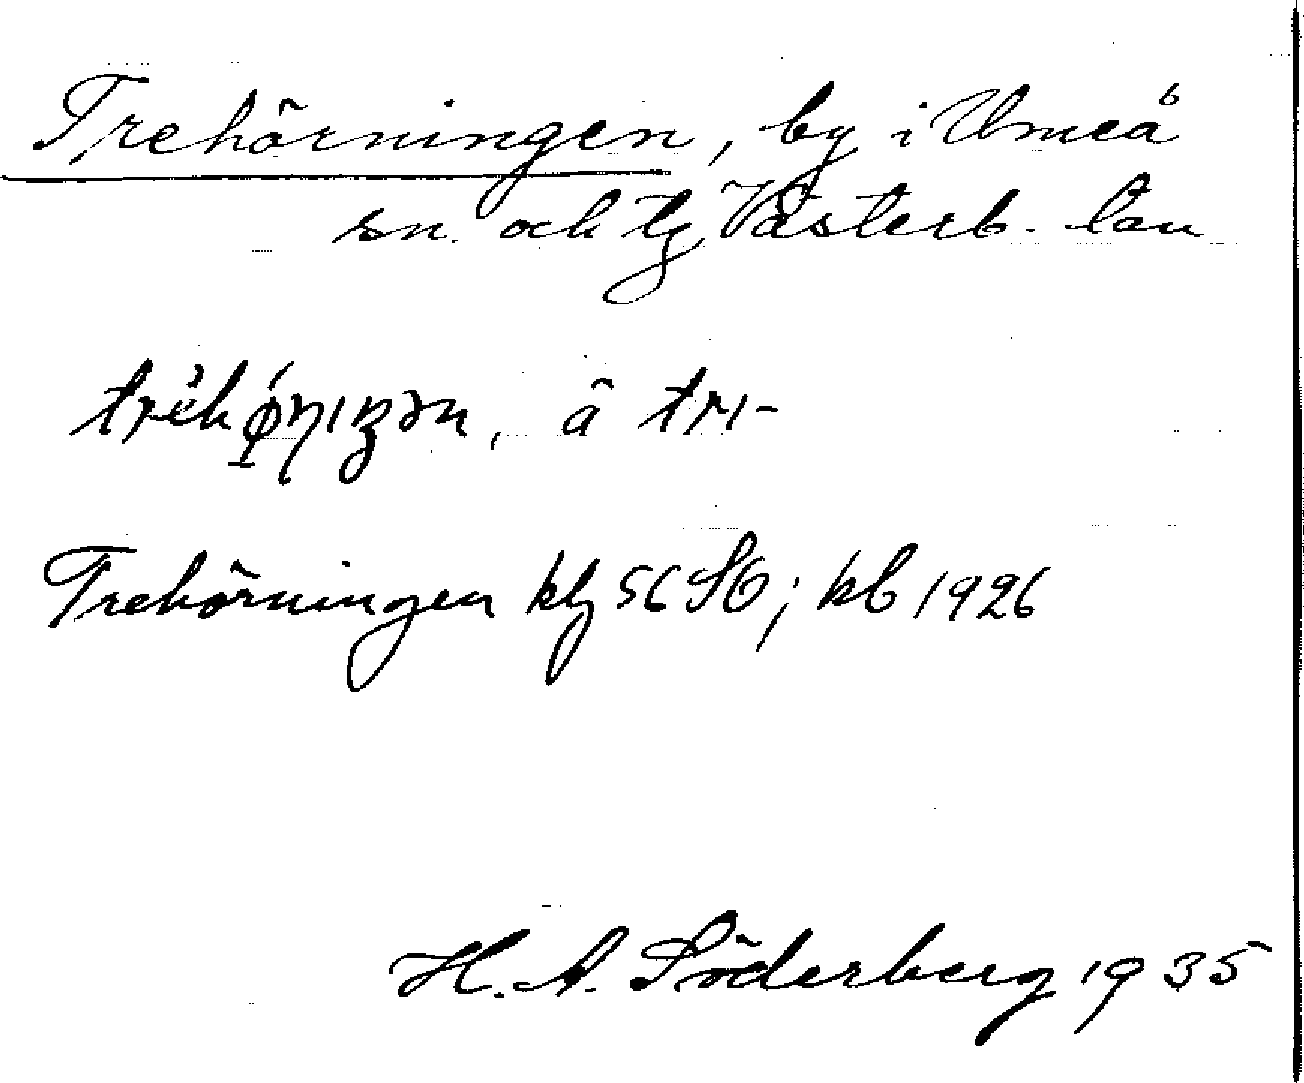 Trehörningen, by i Umeå
sn. och tg Västerb. län
ä tri-
Trehörningen kbg 56 SO; kb 1926
H. A. Söderberg 1935